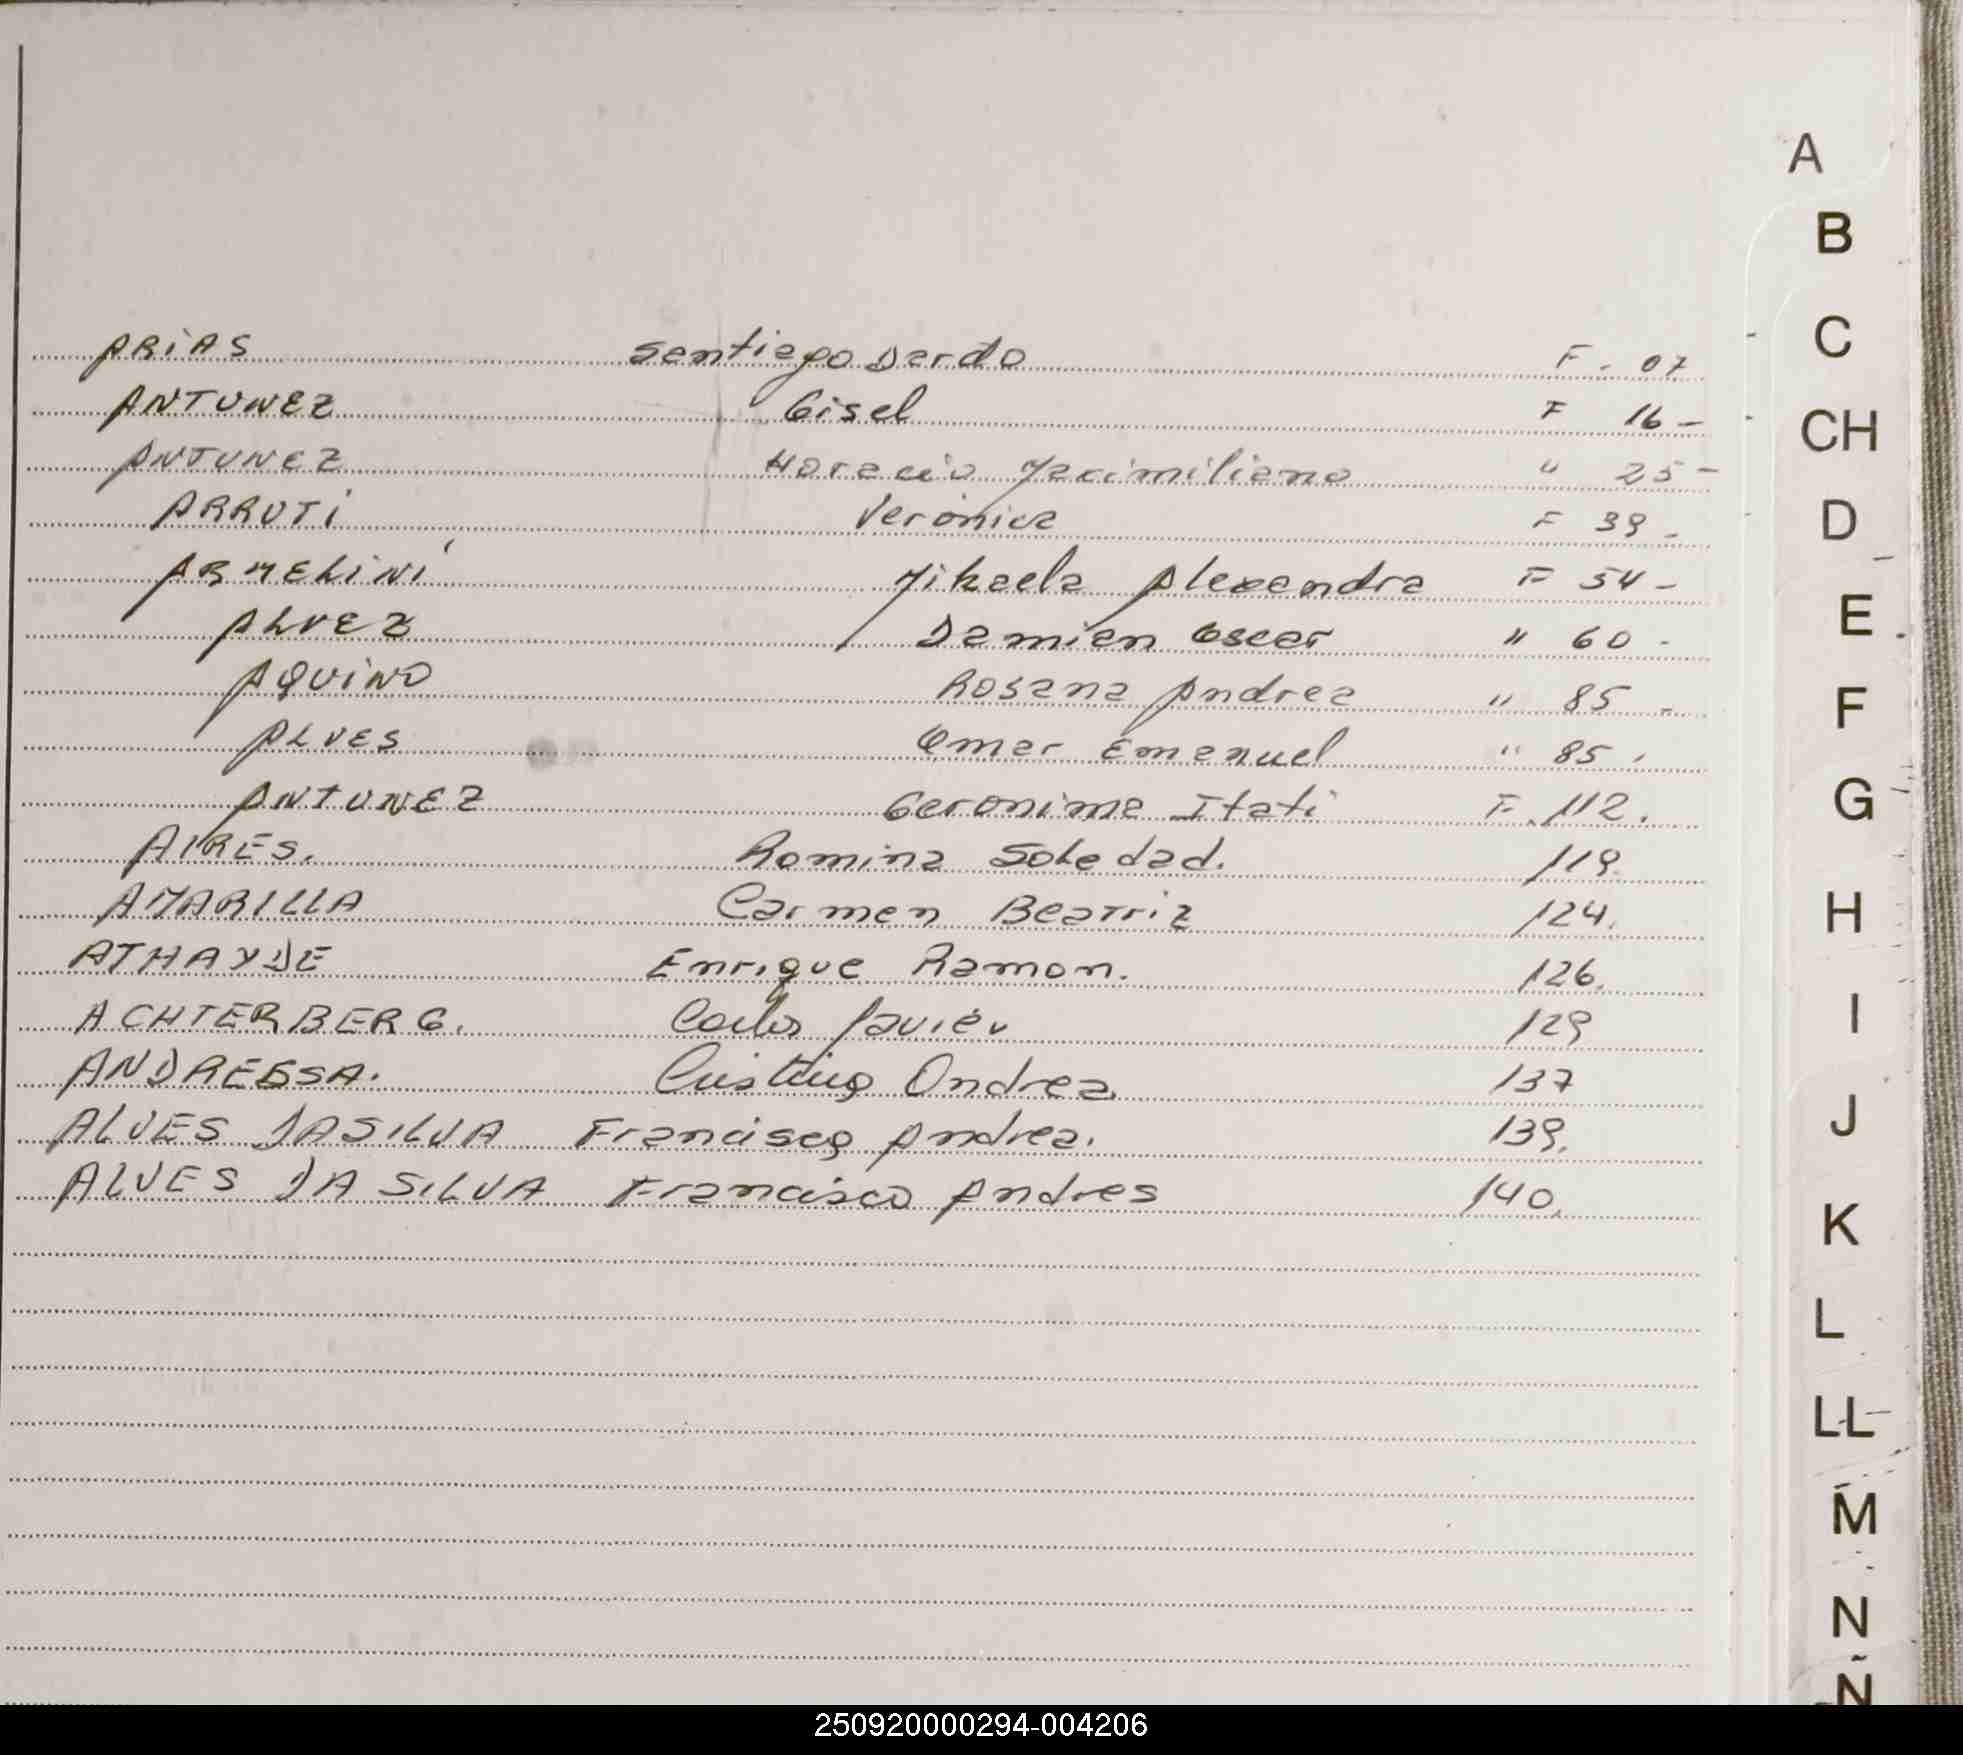 ARIAS Santiago Dardo F. 07
ANTUNEZ Gisel F 16 -
ANTUNEZ Horacio Maximiliano " 25 -
ARRUTI Veronica F 39 -
ARMELINI Mikaela Alexandra F 54 -
ALVEZ Damian Oscar " 60 -
AQUINO Rosana Andrea " 85 -
ALVES Omar Emanuel " 85 .
ANTUNEZ Geronima Itati F. 112.
AIRES. Romina Soledad. 119.
AMARILLA Carmen Beatriz 124.
ATHAYDE Enrique Ramon. 126.
ACHTERBERG. Carlos Javier 129
ANDRESSA. Cristina Andrea. 137
ALVES DASILVA Francisco Andrea. 139.
ALVES DA SILVA Francisco Andres 140.
A
B
C
CH
D
E
F
G
H
I
J
K
L
LL
M
N
Ñ
250920000294-004206